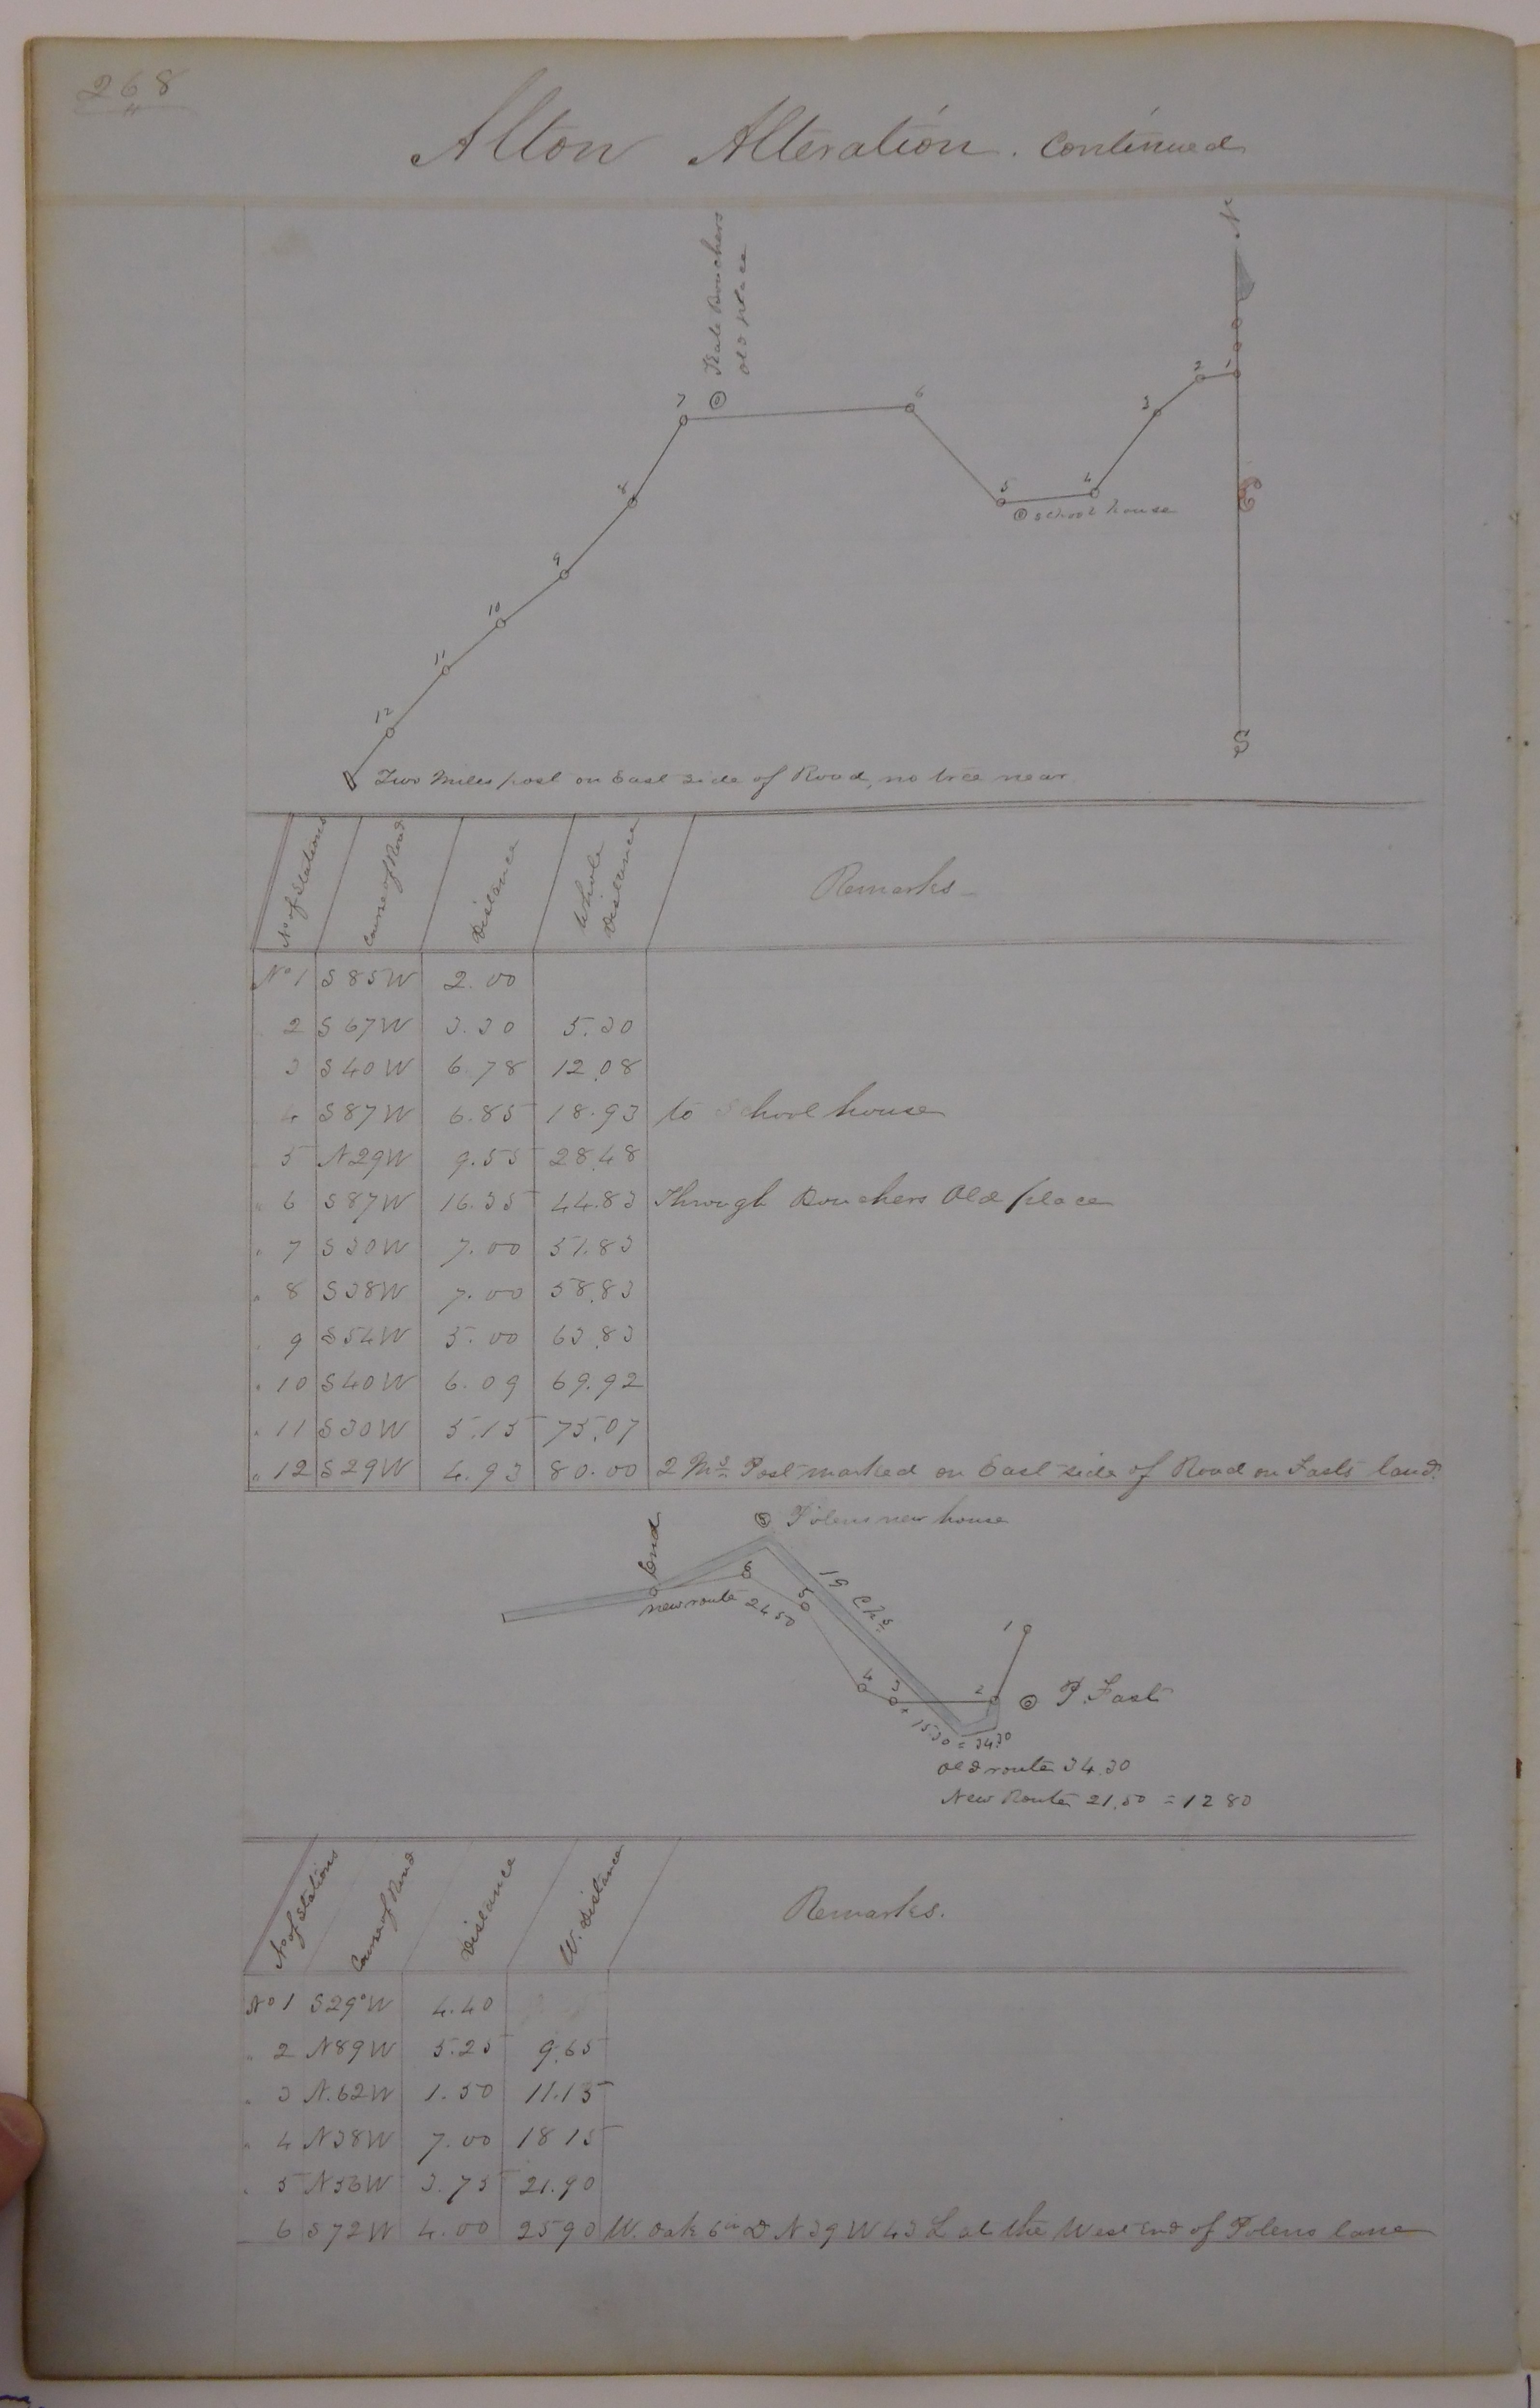 268
Alton Alteration. Continued
N
Bouchers
old place
1
2
3
4
5
6
7
8
9
10
11
12
school house
S
Two Miles post on East side of Road, no tree near
No of Stations Course of Road Distance Whole Distance Remarks
No 1 S 85 W 2.00
2 S 67 W 3.30 5.30
3 S 40 W 6.78 12.08
4 S 87 W 6.85 18.93 to School house
5 N 29 W 9.55 28.48
" 6 S 87 W 16.35 44.83 Through Bouchers Old place
" 7 S 30 W 7.00 51.83
" 8 S 38 W 7.00 58.83
" 9 S 54 W 5.00 63.83
" 10 S 40 W 6.09 69.92
" 11 S 30 W 5.15 75.07
" 12 S 29 W 4.93 80.00 2 Ms. Post marked on East side of Road on Fasts land.
Polens new house
End
6
new route 24 50
5
19 Chs.
1
4
3
2
P. Fast
+ 15 30 = 34.30
Old route 34.30
New Route 21.50 = 12 80
No of Stations Course of Road Distance W. Distance Remarks.
No 1 S 29° W 4.40
" 2 N 89 W 5.25 9.65
" 3 N. 62 W 1.50 11.15
" 4 N 38 W 7.00 18 15
" 5 N 56 W 3.75 21.90
6 S 72 W 4.00 25 90 W. Oak 6 in D N 39 W 43 L at the West End of Polens lane